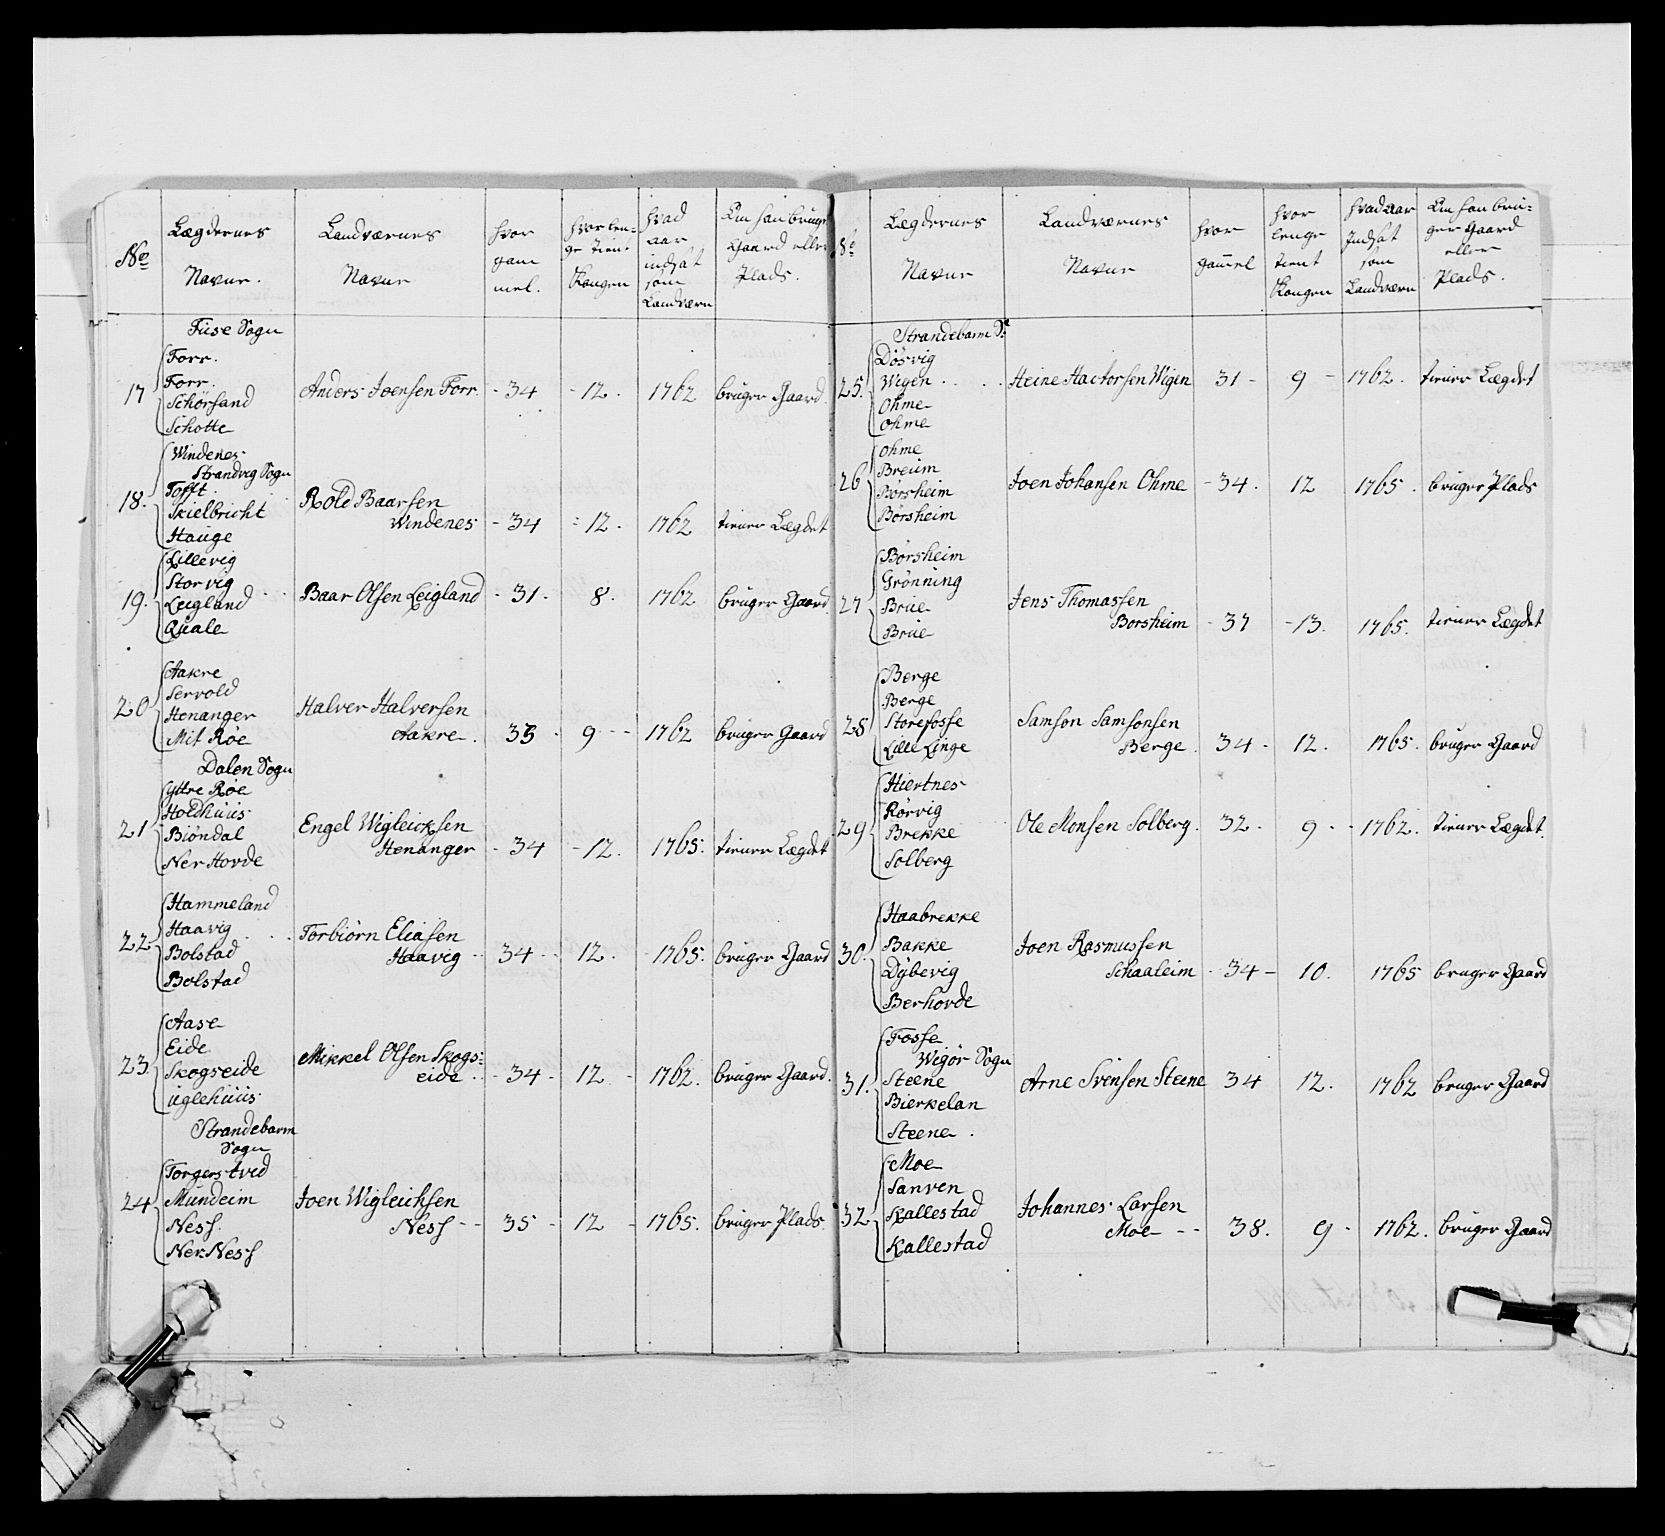 No
Lægdernes Navne.
Landværnes Navne
hvor gam mel.
hvor len- ge tient Kongen
hvad aar indsat som Landværn
Om han bruger Gaard eller Plads.
Fuse Sogn
17 Forr.
Forr.
Schörsand
Schotte
Anders Joensen Forr. - 34 - 12. 1762 bruger Gaard
18. Windenes
Strandvig Sogn
Tofft
Skielbricht
Hauge
Rold Baarsen
Windenes - 34 - 12. 1762 tiener Lægdet
19. Lillevig
Storvig
Leigland
Quale
Baar Olsen Leigland - 31 - 8. 1762 bruger Gaard
20 Aakre
Servold
Henanger
Mit Röe
Halver Halversen
Aakre. 35 - 9 - - 1762 bruger Gaard
Dalen Sogn
21 Yttre Röe
Holdhuus
Biöndal
Ner Hovde
Engel Wigleicksen
Henanger - 34 - 12. 1765. tiener Lægdet
22 Hammeland
Haavig
Bolstad
Bolstad
Torbiörn Eliasen
Haavig - 34 - - 12. - 1765. bruger Gaard
23 Aase
Eide
Skogseide
Uglehuus
Mikkel Olsen Skogs-
eide - 34 - 12 - 1762. bruger Gaard.
Strandebarm
Sogn
24 Torgerstved
Mundeim
Ness.
Ner Ness
Joen Wigleichsen
Ness - - 35 - 12 - 1765. bruger Plads.
No
Lægdernes Navne
Landværnes Navne
hvor gamel
hvor lenge tient Kongen
hvad aar Indsat som Landværn
Om han bru- ger Gaard eller Plads.
Strandebarm S.
25. Dösvig
Wigen
Ohme
Ohme
Heine Hactorsen Wigen 31 - 9 - 1762. tiener Lægdet
26 Ohme
Breum
Börsheim
Börsheim
Joen Johansen Ohme - 34. 12 1765. bruger Plads
27 Börsheim
Grönning
Brue
Brue
Jens Thomassen
Borsheim - 37 - 13. 1765. tiener Lægdet
28 Berge
Berge
Storefosse
Lille Linge
Samson Samsonsen
Berge. 34 - 12. 1765. bruger Gaard
29 Hiertnes
Rörvig
Brekke
Solberg
Ole Monsen Solberg. 32 - 9 - - 1762. tiener Lægdet.
30. Haabrekke
Bakke
Dybevig
Berhovde
Joen Rasmussen
Schaaleim - 34 - 10. 1765 bruger Gaard
31. Fosse
Wigör Sogn
Steene
Bierkelan
Steene.
Arne Svensen Steene 34 12. 1762 bruger Gaard
32 Moe
Sanven
Kallestad
Kallestad
Johannes Larsen
Moe - - 38. 9 - 1762. bruger Gaard